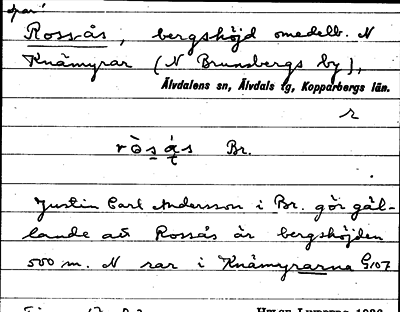 Rossås, bergshöjd omedelb. N
Knämyrar (N Brunsbergs by),
Älvdalens sn, Älvdals tg, Kopparbergs län.
r
Br.
Justin Carl Andersson i Br. gör gäl-
lande att Rossås är bergshöjden
500 m. N rar i Knämyrarna G107